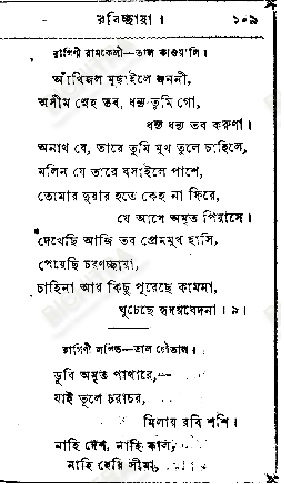 রবিচ্ছায়া। ১০৯
রাগিণী রামকেলী—তাল কাওয়ালি।
আঁখিজল মুছাইলে জননী,
অসীম স্নেহ তব, ধন্য তুমি গো,
ধন্য ধন্য তব করুণা।
অনাথ যে, তারে তুমি মুখ তুলে চাহিলে,
মলিন যে তারে বসাইলে পাশে,
তোমার দুয়ার হতে কেহ না ফিরে,
যে আসে অমৃত পিয়াসে।
দেখেছি আজি তব প্রেমমুখ হাসি,
পেয়েছি চরণচ্ছায়া,
চাহিনা আর কিছু পূরেছে কামনা,
ঘুচেছে হৃদয়বেদনা। ৯।
রাগিণী ললিত—তাল চৌতাল।
ডুবি অমৃত পাথারে,
যাই ভুলে চরাচর,
মিলায় রবি শশি।
নাহি দেশ, নাহি কাল,
নাহি হেরি সীমা,